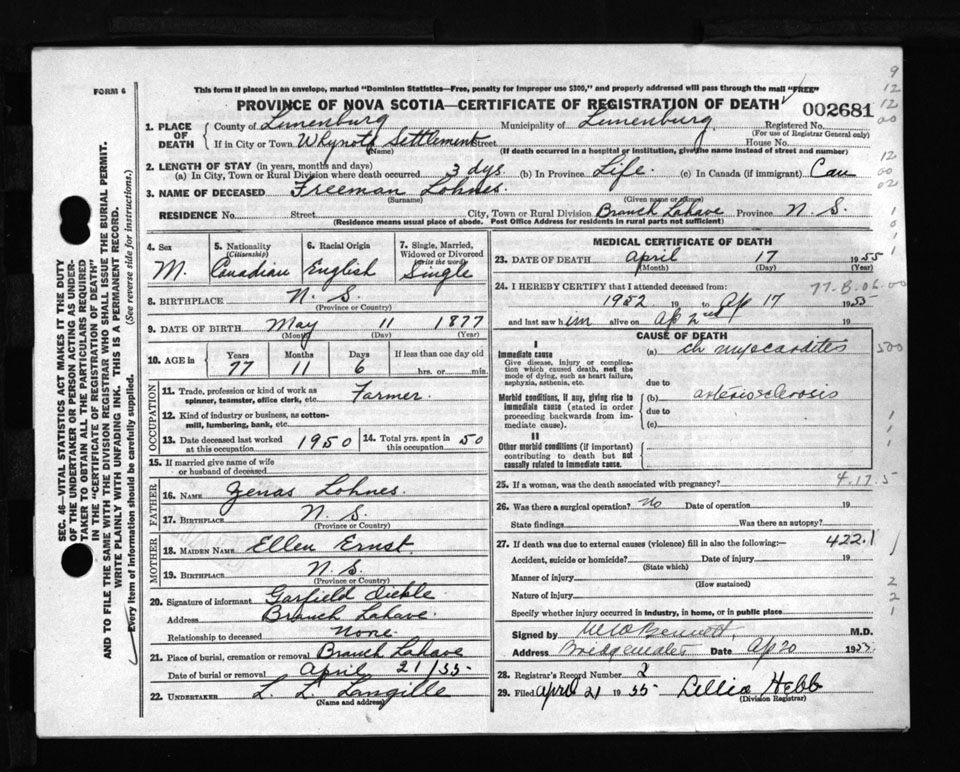 FORM 6
This form if placed in an envelope, marked "Dominion Statistics—Free, penalty for improper use $300," and properly addressed will pass through the mail "FREE"
PROVINCE OF NOVA SCOTIA—CERTIFICATE OF REGISTRATION OF DEATH
002681
1. PLACE OF DEATH
County of Lunenburg Municipality of Lunenburg Registered No.
(For use of Registrar General only)
If in City or Town Whynotts Settlement Street House No.
(Name) (If death occurred in a hospital or institution, give the name instead of street and number)
2. LENGTH OF STAY (in years, months and days)
(a) In City, Town or Rural Division where death occurred 3 dys. (b) In Province Life. (c) In Canada (if immigrant) Can
3. NAME OF DECEASED Freeman Lohnes.
(Surname) (Given name or names)
RESIDENCE No. Street City, Town or Rural Division Branch Lahave Province N. S.
(Residence means usual place of abode. Post Office Address for residents in rural parts not sufficient)
4. Sex M.
5. Nationality (Citizenship) Canadian
6. Racial Origin English
7. Single, Married, Widowed or Divorced (write the word) Single
8. BIRTHPLACE N. S.
(Province or Country)
9. DATE OF BIRTH May 11 1877
(Month) (Day) (Year)
10. AGE in Years Months Days If less than one day old
77 11 6 hrs. or min.
OCCUPATION
11. Trade, profession or kind of work as spinner, teamster, office clerk, etc. Farmer.
12. Kind of industry or business, as cotton-mill, lumbering, bank, etc.
13. Date deceased last worked at this occupation 1950
14. Total yrs. spent in this occupation 50
15. If married give name of wife or husband of deceased
FATHER
16. NAME Zenas Lohnes.
17. BIRTHPLACE N. S.
(Province or Country)
MOTHER
18. MAIDEN NAME Ellen Ernst.
19. BIRTHPLACE N. S.
(Province or Country)
20. Signature of informant Garfield
Address Branch Lahave.
Relationship to deceased None.
21. Place of burial, cremation or removal Branch Lahave
Date of burial or removal April 21/55
22. UNDERTAKER L. L. Langille
(Name and address)
MEDICAL CERTIFICATE OF DEATH
23. DATE OF DEATH April 17 1955
(Month) (Day) (Year)
24. I HEREBY CERTIFY that I attended deceased from:
1952 19 to Ap 17 1955
and last saw him alive on Ap 2nd 19
CAUSE OF DEATH
I
Immediate cause
Give disease, injury or complication which caused death, not the mode of dying, such as heart failure, asphyxia, asthenia, etc.
(a) ch myocarditis
due to
Morbid conditions, if any, giving rise to immediate cause (stated in order proceeding backwards from immediate cause).
(b) arteriosclerosis
due to
(c)
II
Other morbid conditions (if important) contributing to death but not causally related to immediate cause.
25. If a woman, was the death associated with pregnancy? 4.17.5
26. Was there a surgical operation? No Date of operation 19
State findings Was there an autopsy?
27. If death was due to external causes (violence) fill in also the following:— 422.1
Accident, suicide or homicide? Date of injury 19
(State which)
Manner of injury
(How sustained)
Nature of injury
Specify whether injury occurred in industry, in home, or in public place
Signed by M.D.
Address Bridgewater Date Ap 20 1955
28. Registrar's Record Number 2
29. Filed April 21 1955 Lellia Hebb
(Division Registrar)
SEC. 46—VITAL STATISTICS ACT MAKES IT THE DUTY
OF THE UNDERTAKER OR PERSON ACTING AS UNDER-
TAKER TO OBTAIN ALL THE PARTICULARS REQUIRED
IN THE "CERTIFICATE OF REGISTRATION OF DEATH"
AND TO FILE THE SAME WITH THE DIVISION REGISTRAR WHO SHALL ISSUE THE BURIAL PERMIT.
WRITE PLAINLY WITH UNFADING INK. THIS IS A PERMANENT RECORD.
Every item of Information should be carefully supplied. (See reverse side for instructions.)